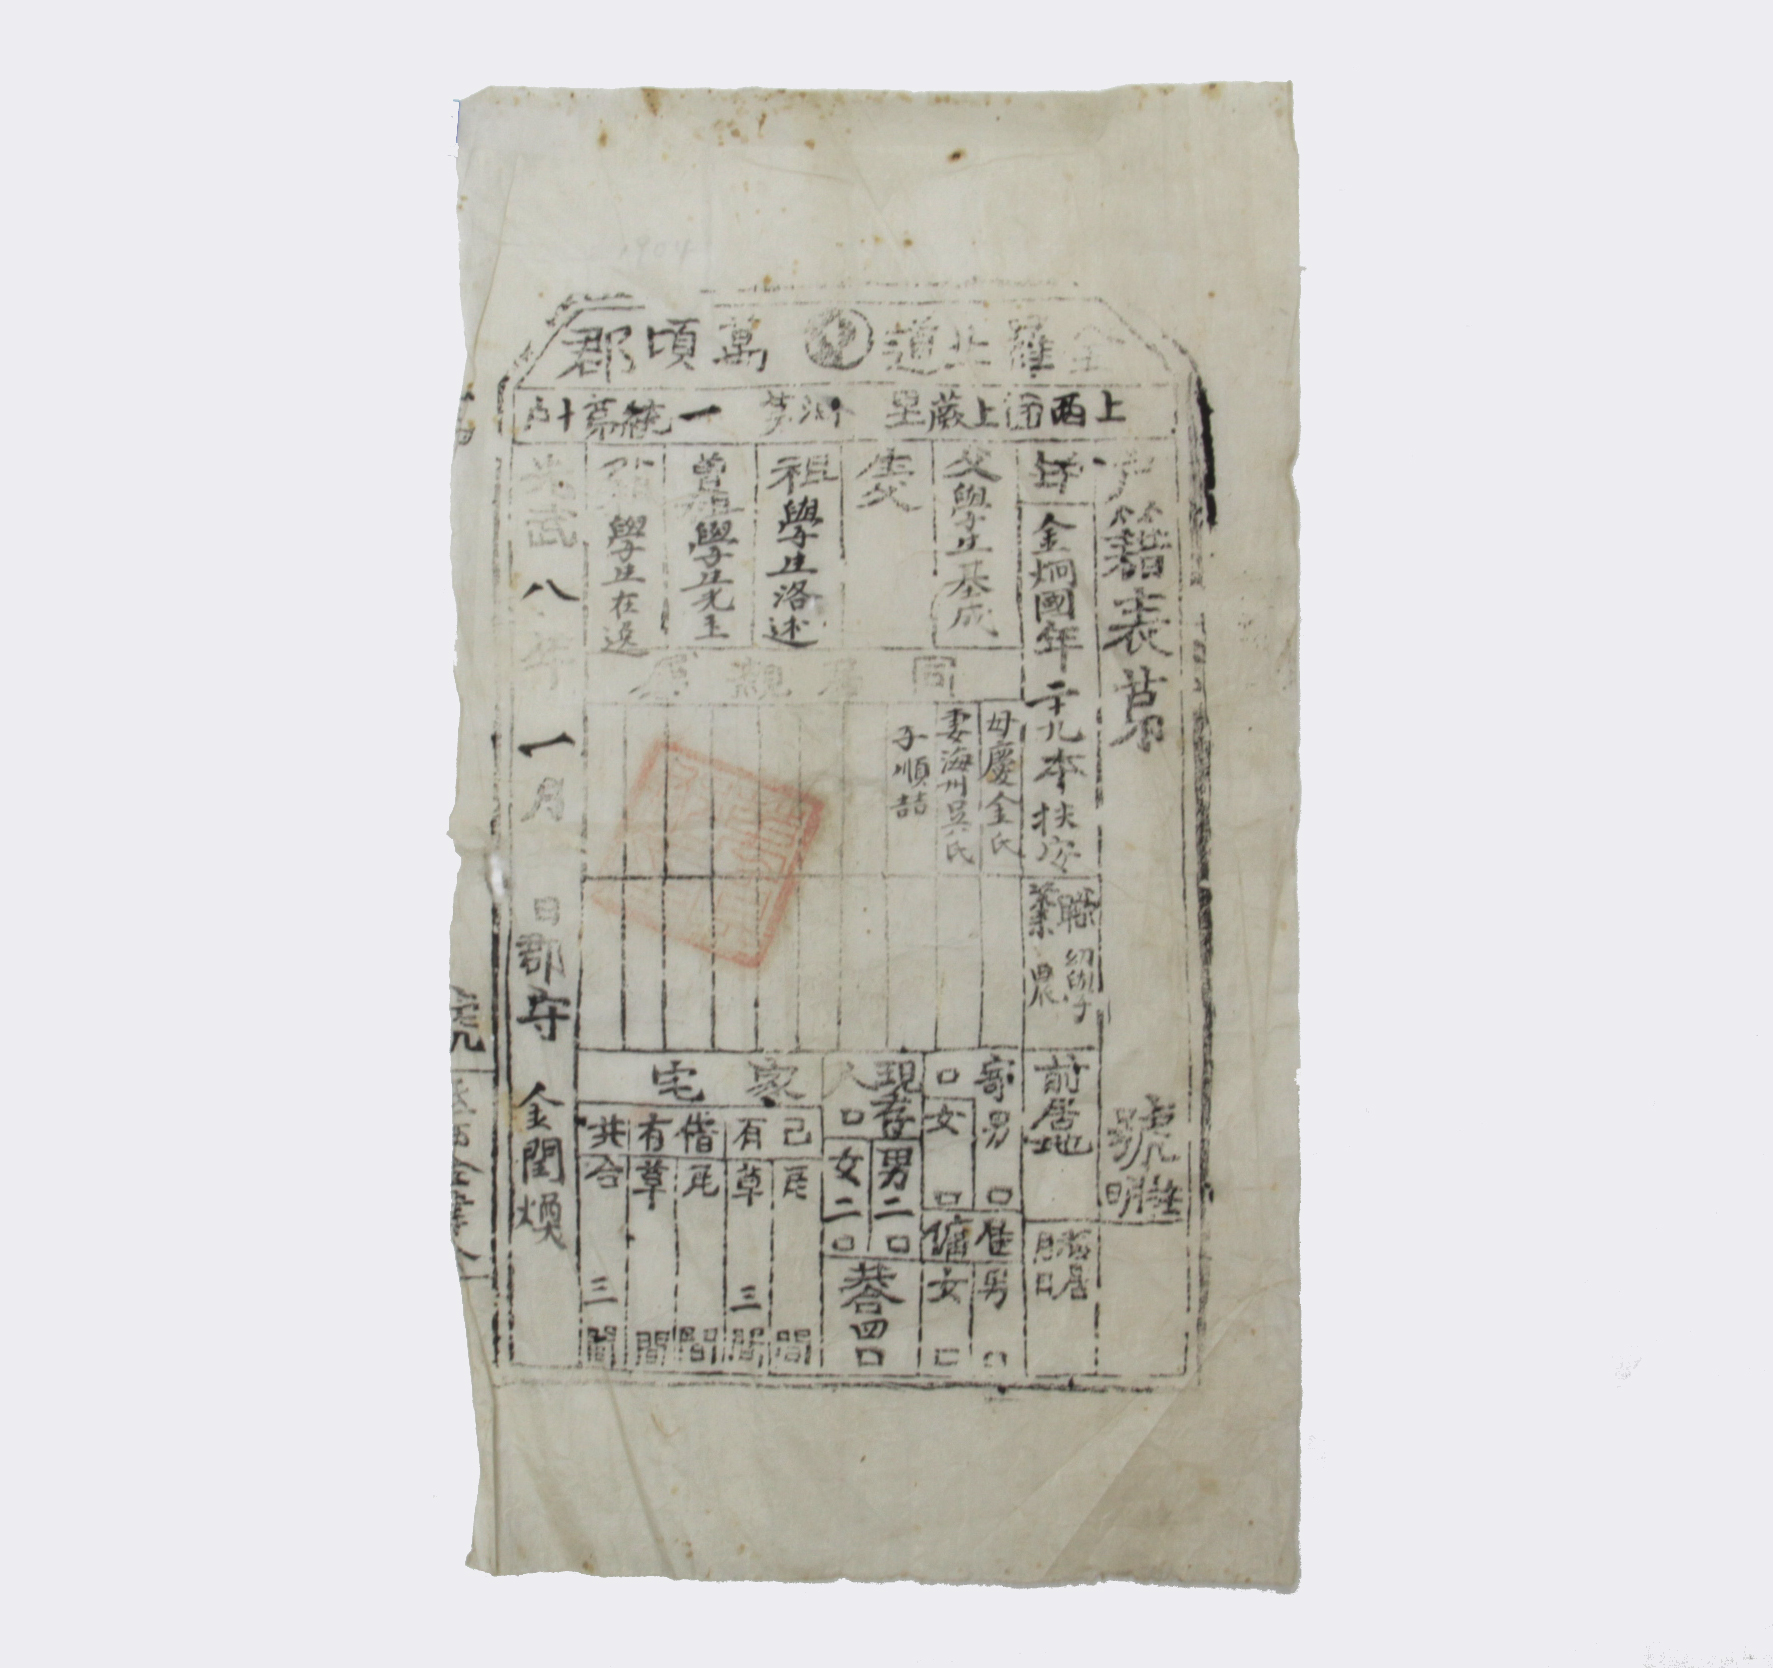 全羅北道 萬頃郡
上西面上蕨里 洞第 一統第十戶
戶籍表第 號
戶主 金炯國年二十九本扶安
職 幼學
業 農
前居地
移居 月 日
父學生基成
生父
祖學生洛述
曾祖學生光玉
外祖學生在
同居親屬
母慶金氏
妻海州吳氏
子順喆
寄口 男 口
女 口
雇傭 男 口
女 口
現存人口 男二口
女二口
共合四口
家宅
己有 瓦 間
草 三間
借有 瓦 間
草 間
共合 三間
光武八年一月 日郡守 金閏煥
1904